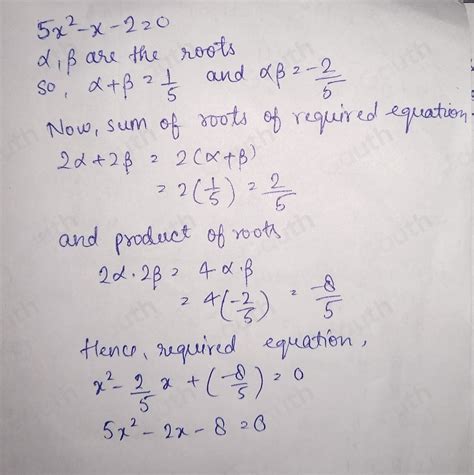 5x² - x - 2 = 0
α, β are the roots
so, α + β = 1/5 and αβ = -2/5
Now, sum of roots of required equation
2α + 2β = 2(α + β)
= 2(1/5) = 2/5
and product of roots
2α · 2β = 4α · β
= 4(-2/5) = -8/5
Hence, required equation,
x² - 2/5 x + (-8/5) = 0
5x² - 2x - 8 = 0